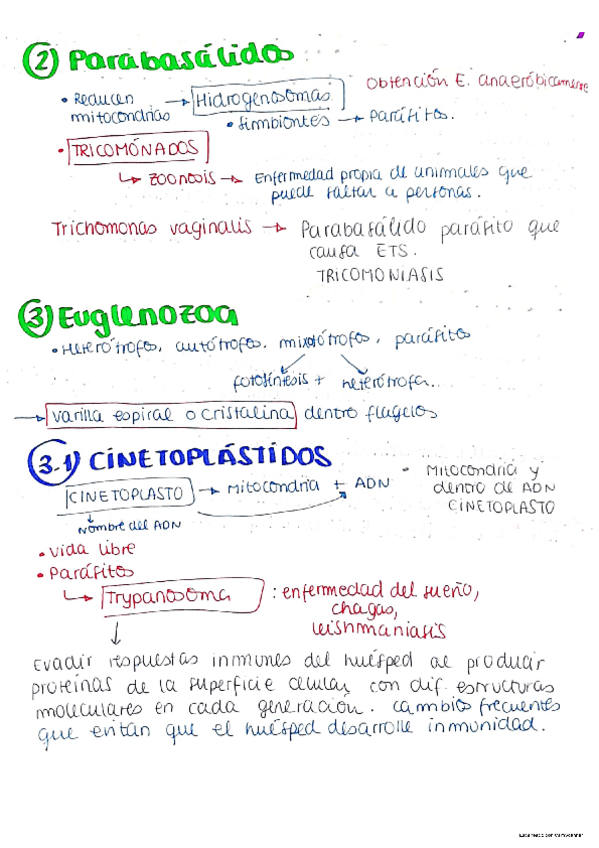 2) Parabasálidos
Obtención E. anaeróbicamente
• Reducen mitocondrias → Hidrogenosomas
• Simbiontes → Parásitos.
• TRICOMÓNADOS
↳ zoonosis → Enfermedad propia de animales que
puede saltar a personas.
Trichomonas vaginalis → Parabasálido parásito que
causa ETS.
TRICOMONIASIS
3) Euglenozoa
• Heterótrofos, autótrofos, mixotrófos, parásitos
fotosíntesis + heterótrofa..
→ varilla espiral o cristalina dentro flagelos
3.1) CINETOPLÁSTIDOS
CINETOPLASTO → Mitocondria + ADN
Nombre del ADN
• Mitocondria y
dentro de ADN
CINETOPLASTO
• Vida libre
• Parásitos
↳ Trypanosoma : enfermedad del sueño,
chagas,
leishmaniasis
↓
Evadir respuestas inmunes del huésped al producir
proteínas de la superficie celular, con dif. estructuras
moleculares en cada generación. Cambios frecuentes
que evitan que el huésped desarrolle inmunidad.